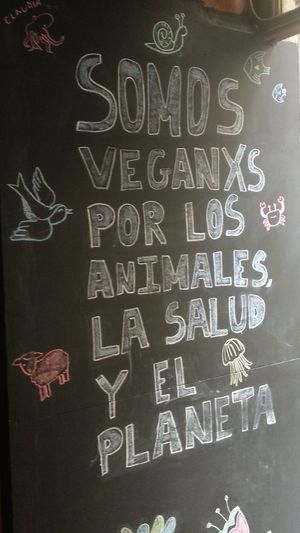 CLAUDIA
SOMOS
VEGANXS
POR LOS
ANIMALES,
LA SALUD
Y EL
PLANETA